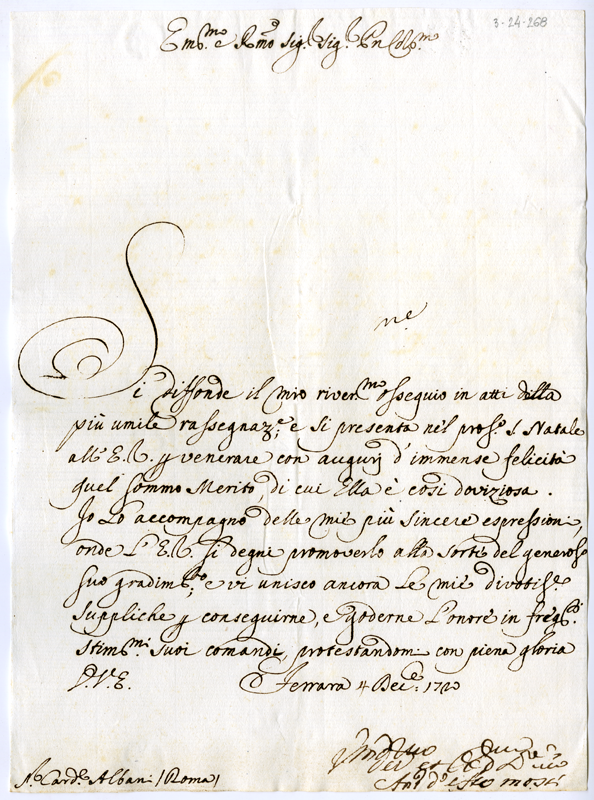 3-24-268
Em.mo e R.mo Sig.r Sig.r Pn Col.mo
ne
Si diffonde il mio river.mo ossequio in atti della
più umile rassegnaz.e; e si presenta nel pros.o S. Natale
all' E. V. p venerare con augurj d' immense felicità
quel sommo Merito, di cui Ella è così doviziosa.
Io Lo accompagno delle mie più sincere espressioni,
onde L' E. V. si degni promoverlo alla sorte del generoso
suo gradim.to; e vi unisco ancora Le mie divotis.e
suppliche p conseguirne, e goderne L' onore in freq.ti
stim.mi suoi comandi, protestandomi con piena gloria
D. V. E. Ferrara 4 Dec.e 1720
Ant.o d' Este Mosti
S.r Card.e Albani (Roma)